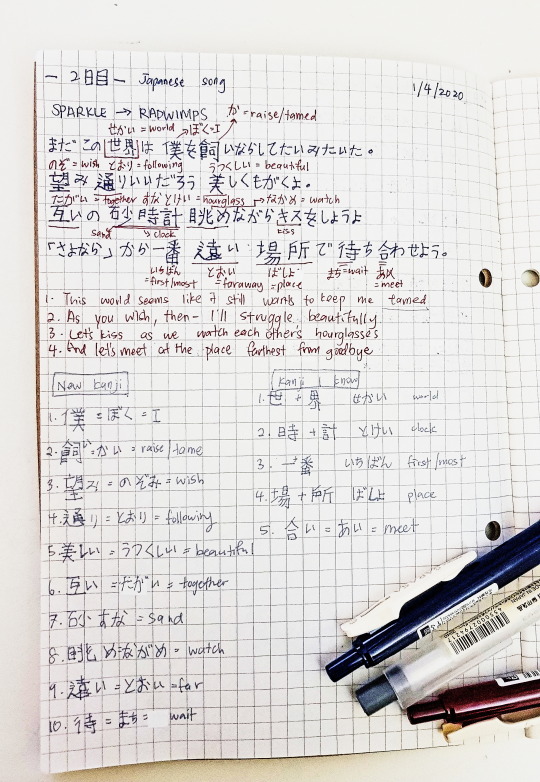 — 2日目 — Japanese song
1/4/2020
SPARKLE → RADWIMPS か = raise/tamed
せかい = world → ぼく = I
まだこの世界は僕を飼いならしてたいみたいだ。
のぞ = wish とおり = following うつくしい = beautiful
望み通りいいだろう 美しくもがくよ。
たがい = together すなどけい = hourglass → ながめ = watch
互いの砂時計 眺めながらキスをしようよ
sand clock kiss
「さよなら」から一番 遠い 場所で待ち合わせよう。
いちばん とおい ばしょ まち=wait あわ
=first/most =faraway =place =meet
1. This world seems like it still wants to keep me tamed
2. As you wish, then- I'll struggle beautifully
3. Let's kiss as we watch each other's hourglasses
4. And let's meet at the place farthest from goodbye
New kanji
1. 僕 = ぼく = I
2. 飼い = かい = raise/tame
3. 望み = のぞみ = wish
4. 通り = とおり = following
5. 美しい = うつくしい = beautiful
6. 互い = たがい = together
7. 砂 すな = sand
8. 眺め ながめ = watch
9. 遠い = とおい = far
10. 待 = まち = wait
kanji I know
1. 世 + 界 せかい world
2. 時 + 計 とけい clock
3. 一番 いちばん first/most
4. 場 + 所 ばしょ place
5. 合い = あい = meet